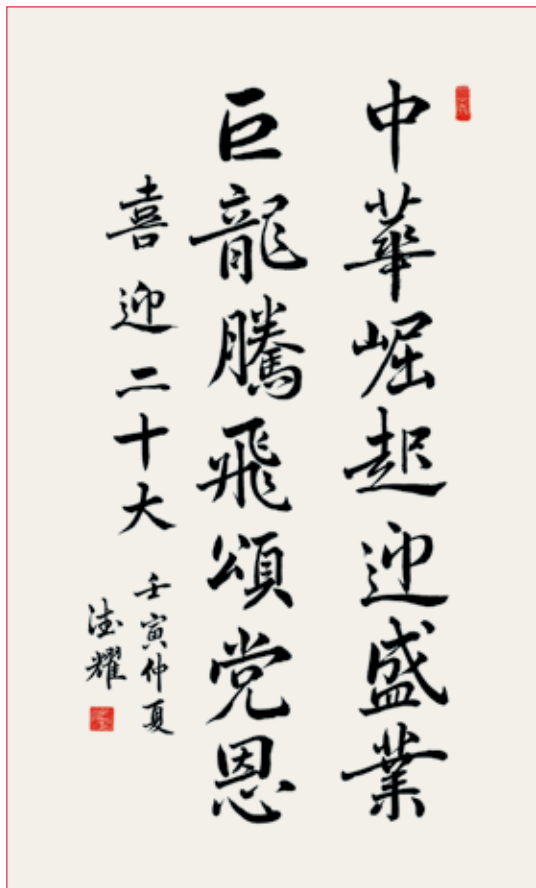 中華崛起迎盛業
巨龍騰飛頌党恩
喜迎二十大
壬寅仲夏
德耀